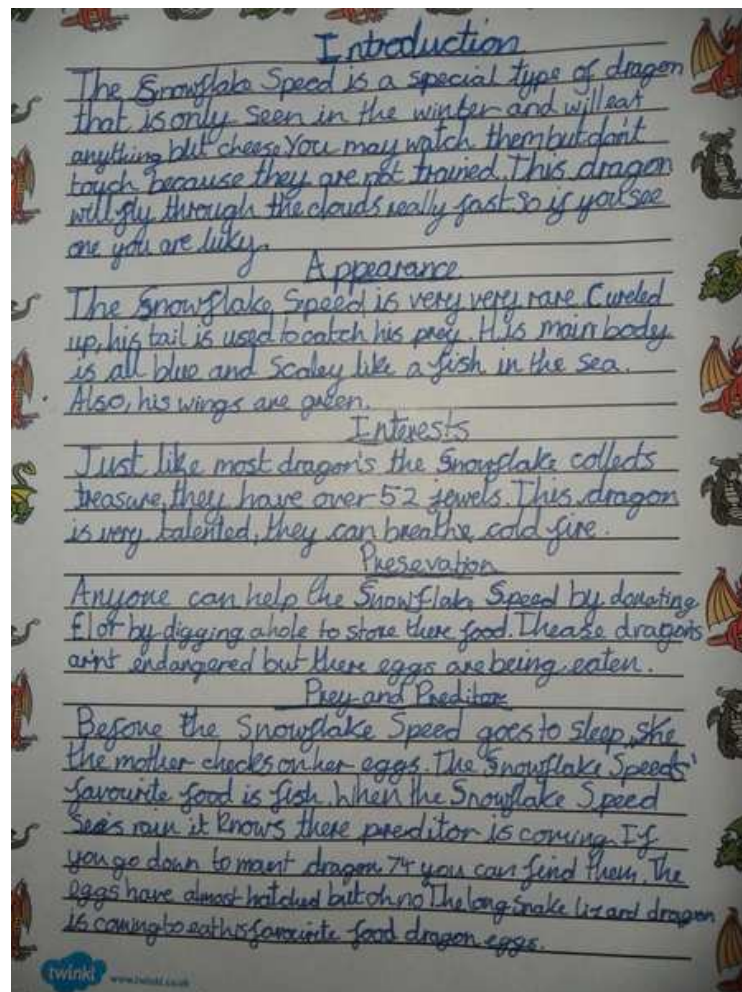 Introduction
The Snowflake Speed is a special type of dragon
that is only seen in the winter and will eat
anything but cheese. You may watch them but don't
touch because they are not trained. This dragon
will fly through the clouds really fast so if you see
one you are luky.
Appearance
The Snowflake Speed is very very rare. Cureled
up, his tail is used to catch his prey. His main body
is all blue and scaley like a fish in the sea.
Also, his wings are green.
Interests
Just like most dragon's the Snowflake collects
treasure, they have over 52 jewels. This dragon
is very talented, they can breathe cold fire.
Presevation
Anyone can help the Snowflake Speed by donating
£1 or by digging a hole to store there food. Thease dragons
arn't endangered but there eggs are being eaten.
Prey and Preditor
Before the Snowflake Speed goes to sleep, she
the mother checks on her eggs. The Snowflake Speeds'
favourite food is fish. When the Snowflake Speed
sees rain it knows there preditor is coming. If
you go down to mount dragon 74 you can find them. The
eggs have almost hatched but oh no The long snake lizard dragon
is coming to eat his favourite food dragon eggs.
twinkl www.twinkl.co.uk